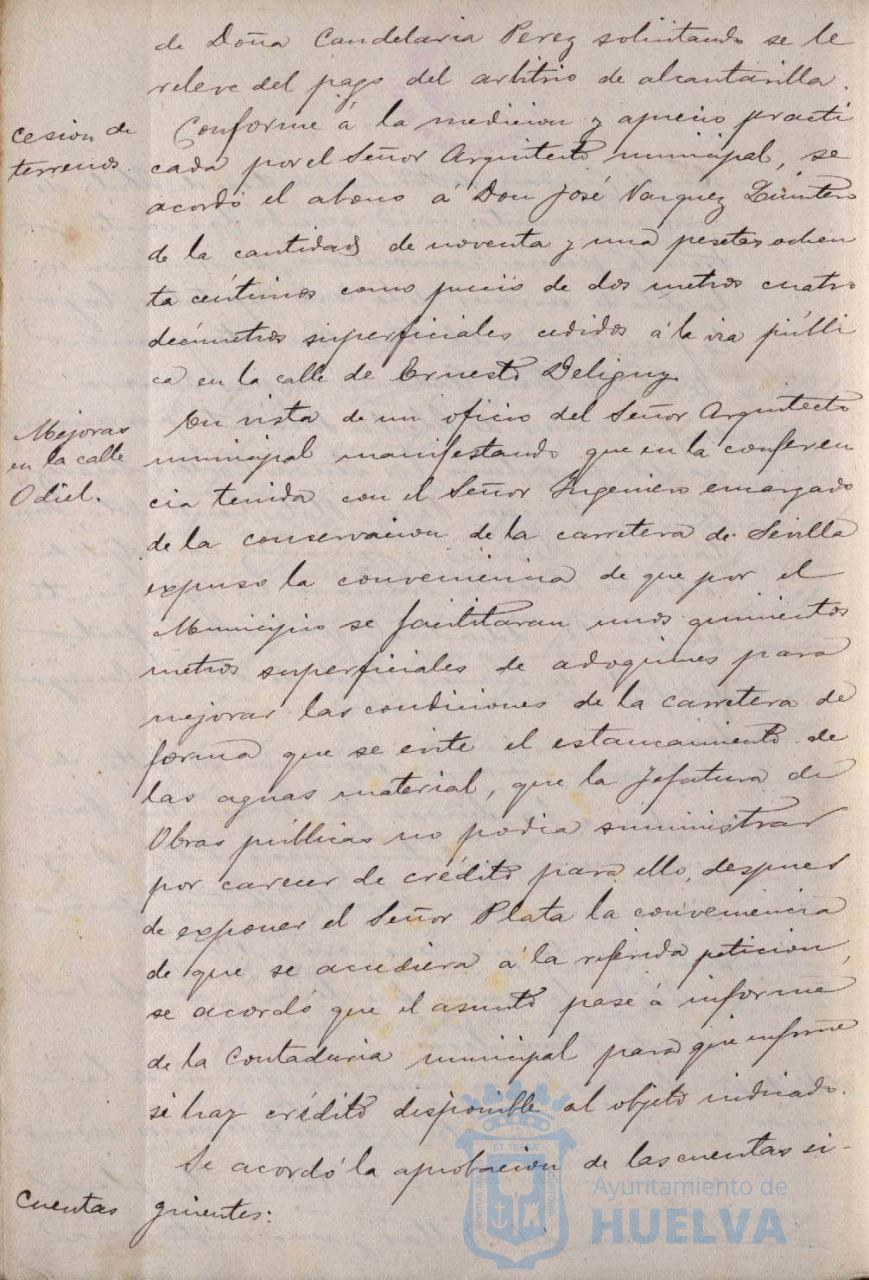 de Doña Candelaria Perez solicitando se le
releve del pago del arbitrio de alcantarilla.
Cesion de
terrenos.
Conforme á la medicion y aprecio practi
cada por el Señor Arquitecto municipal, se
acordó el abono á Don José Vazquez Quintero
de la cantidad de noventa y una pesetas ochen
ta céntimos como precio de dos metros cuatro
decímetros superficiales cedidos á la via públi
ca en la calle de Ernesto Deligny.
Mejoras
en la calle
Odiel.
En vista de un oficio del Señor Arquitecto
municipal manifestando que en la conferen
cia tenida con el Señor Ingeniero encargado
de la conservacion de la carretera de Sevilla
expuso la conveniencia de que por el
Municipio se facilitaran unos quinientos
metros superficiales de adoquines para
mejorar las condiciones de la carretera de
forma que se evite el estancamiento de
las aguas material, que la Jefatura de
Obras públicas no podia suministrar
por carecer de crédito para ello, despues
de exponer el Señor Plata la conveniencia
de que se accediera á la referida peticion,
se acordó que el asunto pase á informe
de la Contaduria municipal para que informe
si hay crédito disponible al objeto indicado.
Se acordó la aprobacion de las cuentas si-
Cuentas
guientes:
Ayuntamiento de
HUELVA